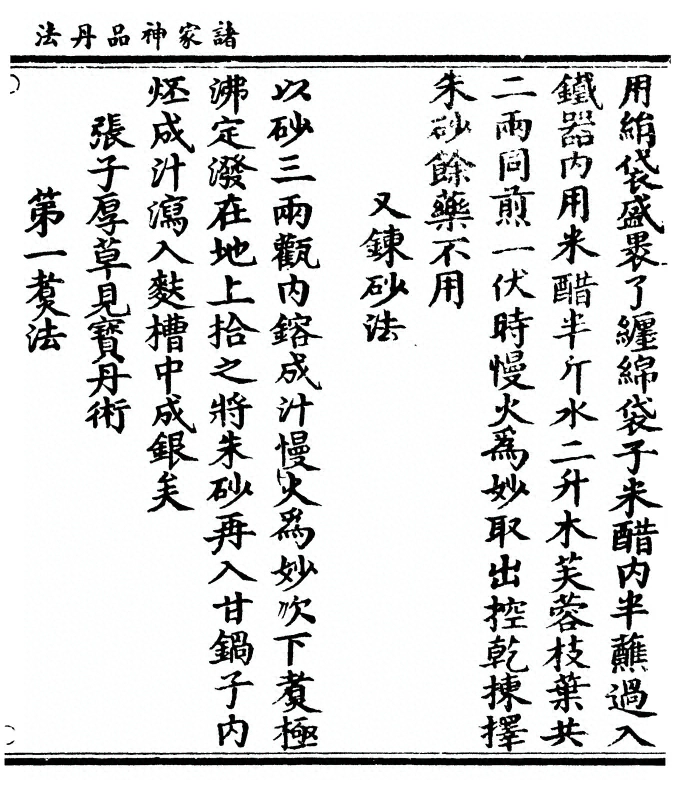 諸家神品丹法
用絹袋盛褁了纒綿袋子米醋内半蘸過入
鐵器内用米醋半斤水二升木芙蓉枝葉共
二兩同煎一伏時慢火爲妙取出控乾揀擇
朱砂餘藥不用
又鍊砂法
以砂三兩甂内鎔成汁慢火爲妙吹下煑極
沸定潑在地上拾之將朱砂再入甘鍋子内
烬成汁瀉入麩槽中成銀矣
張子厚草見寶丹術
第一煑法